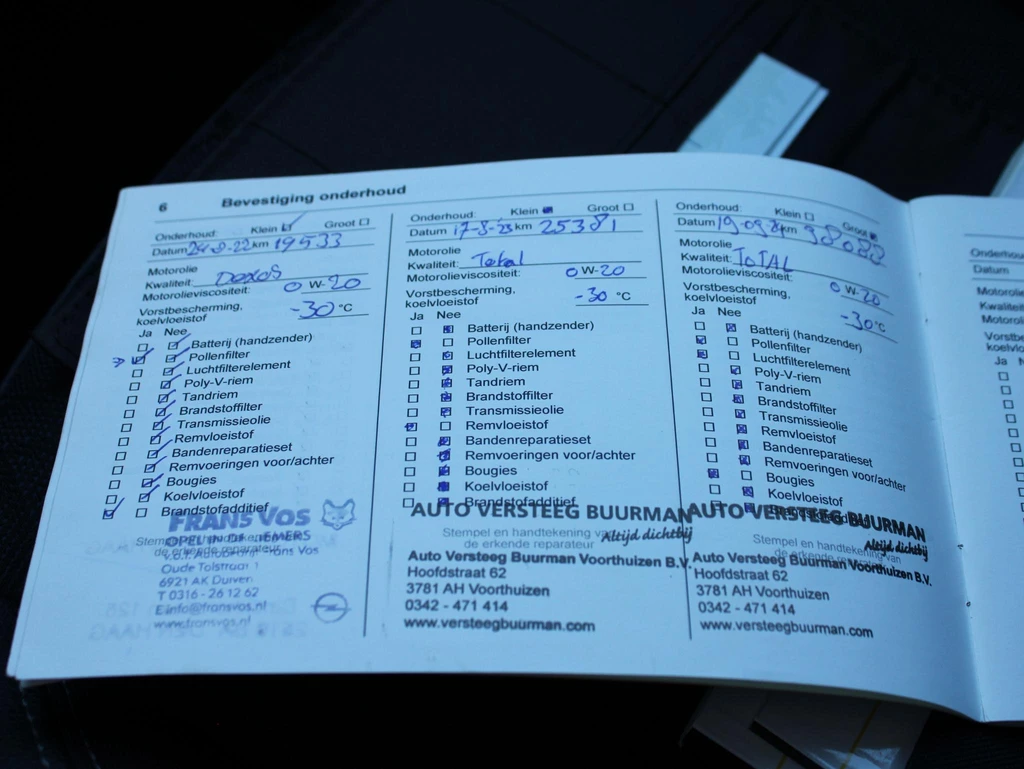 6 Bevestiging onderhoud
Onderhoud: Klein Groot
Datum 24-8-22 km 19533
Motorolie
Kwaliteit: Dexos
Motorolieviscositeit: 0 W-20
Vorstbescherming,
koelvloeistof -30 °C
Ja Nee
Batterij (handzender)
Pollenfilter
Luchtfilterelement
Poly-V-riem
Tandriem
Brandstoffilter
Transmissieolie
Remvloeistof
Bandenreparatieset
Remvoeringen voor/achter
Bougies
Koelvloeistof
Brandstofadditief
FRANS VOS
OPEL IN DE LIEMERS
Stempel en handtekening
de erkende reparateur
Frans Vos
Oude Tolstraat 1
6921 AK Duiven
T 0316 - 26 12 62
E info@fransvos.nl
www.fransvos.nl
Onderhoud: Klein Groot
Datum 17-8-23 km 25381
Motorolie
Kwaliteit: Total
Motorolieviscositeit: 0 W-20
Vorstbescherming,
koelvloeistof -30 °C
Ja Nee
Batterij (handzender)
Pollenfilter
Luchtfilterelement
Poly-V-riem
Tandriem
Brandstoffilter
Transmissieolie
Remvloeistof
Bandenreparatieset
Remvoeringen voor/achter
Bougies
Koelvloeistof
Brandstofadditief
AUTO VERSTEEG BUURMAN
Stempel en handtekening van
de erkende reparateur
Altijd dichtbij
Auto Versteeg Buurman Voorthuizen B.V.
Hoofdstraat 62
3781 AH Voorthuizen
0342 - 471 414
www.versteegbuurman.com
Onderhoud: Klein Groot
Datum 19-09-24 km 38088
Motorolie
Kwaliteit: ToTAL
Motorolieviscositeit: 0 W-20
Vorstbescherming,
koelvloeistof -30°C
Ja Nee
Batterij (handzender)
Pollenfilter
Luchtfilterelement
Poly-V-riem
Tandriem
Brandstoffilter
Transmissieolie
Remvloeistof
Bandenreparatieset
Remvoeringen voor/achter
Bougies
Koelvloeistof
AUTO VERSTEEG BUURMAN
Stempel en handtekening van
de erkende reparateur
Altijd dichtbij
Auto Versteeg Buurman Voorthuizen B.V.
Hoofdstraat 62
3781 AH Voorthuizen
0342 - 471 414
www.versteegbuurman.com
Datum
Ja